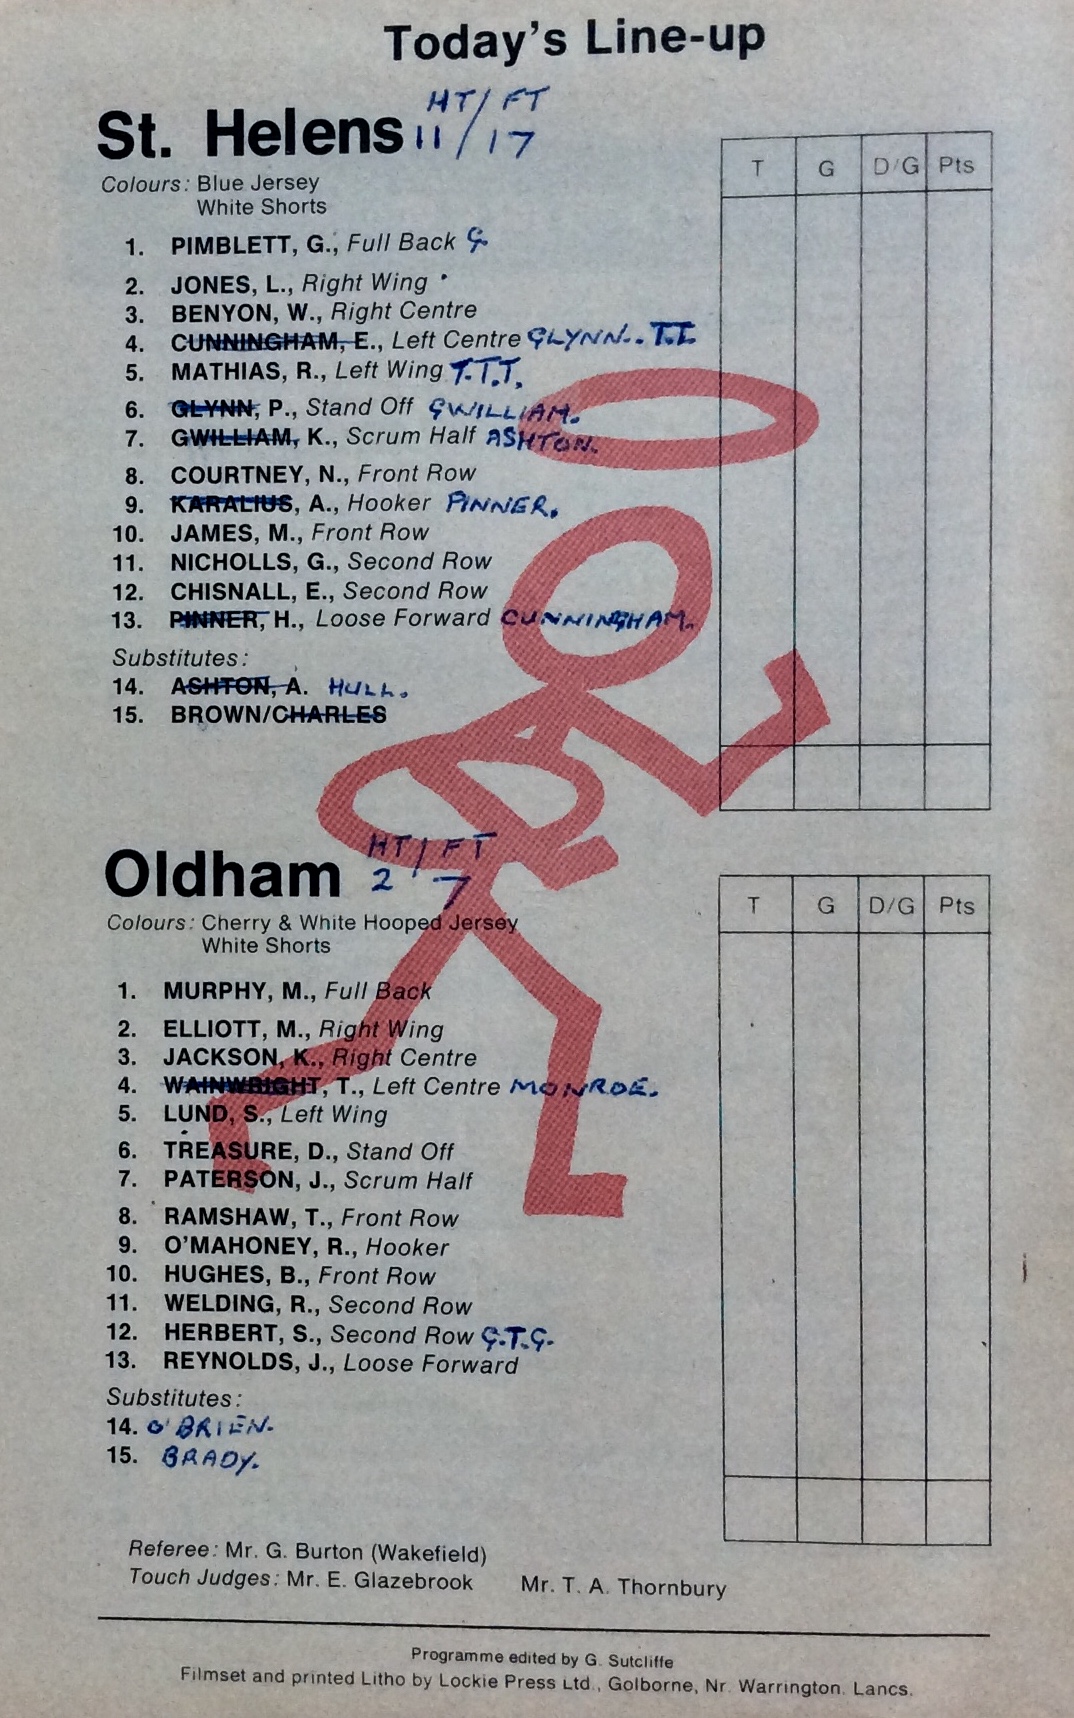 Today's Line-up
HT/FT
St. Helens 11/17
Colours: Blue Jersey
White Shorts
T G D/G Pts
1. PIMBLETT, G., Full Back G.
2. JONES, L., Right Wing
3. BENYON, W., Right Centre
4. CUNNINGHAM, E., Left Centre GLYNN.. T.T.
5. MATHIAS, R., Left Wing T.T.T.
6. GLYNN, P., Stand Off GWILLIAM.
7. GWILLIAM, K., Scrum Half ASHTON.
8. COURTNEY, N., Front Row
9. KARALIUS, A., Hooker PINNER.
10. JAMES, M., Front Row
11. NICHOLLS, G., Second Row
12. CHISNALL, E., Second Row
13. PINNER, H., Loose Forward CUNNINGHAM.
Substitutes:
14. ASHTON, A. HULL.
15. BROWN/CHARLES
HT/FT
Oldham 2 7
Colours: Cherry & White Hooped Jersey
White Shorts
T G D/G Pts
1. MURPHY, M., Full Back
2. ELLIOTT, M., Right Wing
3. JACKSON, K., Right Centre
4. WAINWRIGHT, T., Left Centre MONROE.
5. LUND, S., Left Wing
6. TREASURE, D., Stand Off
7. PATERSON, J., Scrum Half
8. RAMSHAW, T., Front Row
9. O'MAHONEY, R., Hooker
10. HUGHES, B., Front Row
11. WELDING, R., Second Row
12. HERBERT, S., Second Row G.T.G.
13. REYNOLDS, J., Loose Forward
Substitutes:
14. O'BRIEN.
15. BRADY.
Referee: Mr. G. Burton (Wakefield)
Touch Judges: Mr. E. Glazebrook Mr. T. A. Thornbury
Programme edited by G. Sutcliffe
Filmset and printed Litho by Lockie Press Ltd., Golborne, Nr. Warrington. Lancs.